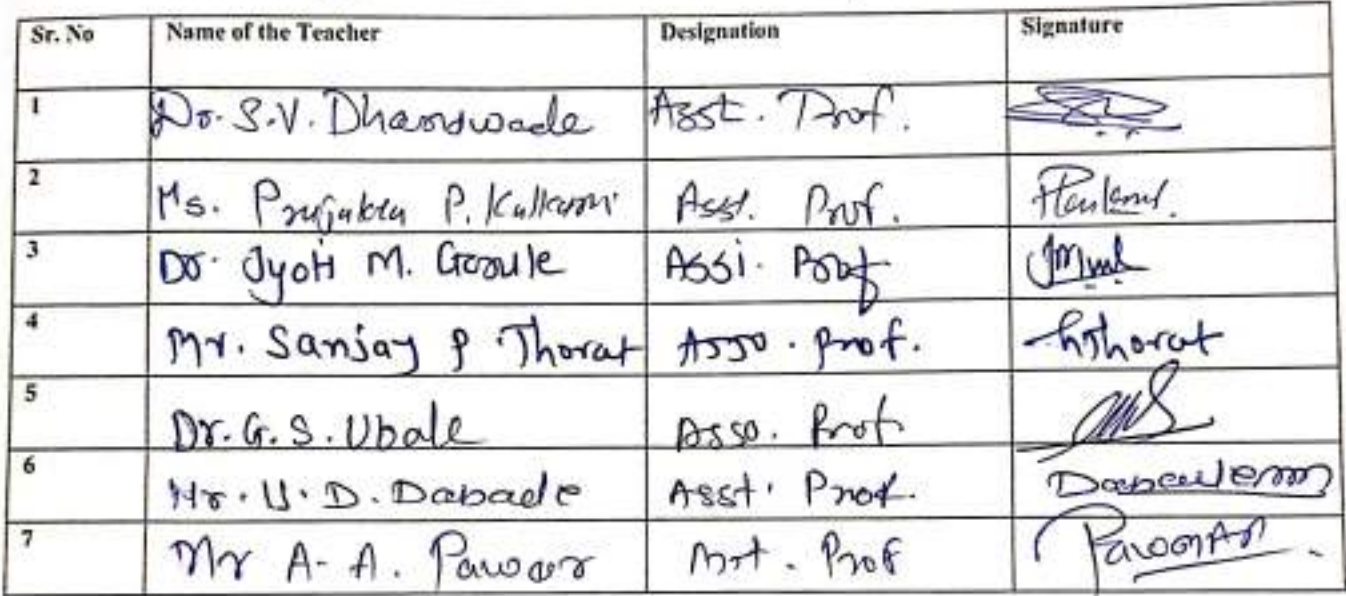 Sr. No Name of the Teacher Designation Signature
1 Dr. S.V. Dhanawade Asst. Prof.
2 Ms. P. Kulkarni Asst. Prof.
3 Dr. Jyoti M. Gorule Assi. Prof
4 Mr. Sanjay P Thorat Asso. Prof. Thorat
5 Dr. G. S. Ubale Asso. Prof
6 Mr. U. D. Dabade Asst. Prof.
7 Mr A. A. Pawar Prof